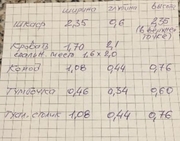 ширина глубина высота
Шкаф 2,35 0,6 2,35
Кровать 1,70 2,1
спальн. место 1,6 x 2,0
Комод 1,08 0,44 0,76
Тумбочка 0,46 0,34 0,60
Туал. столик 1,08 0,44 0,76